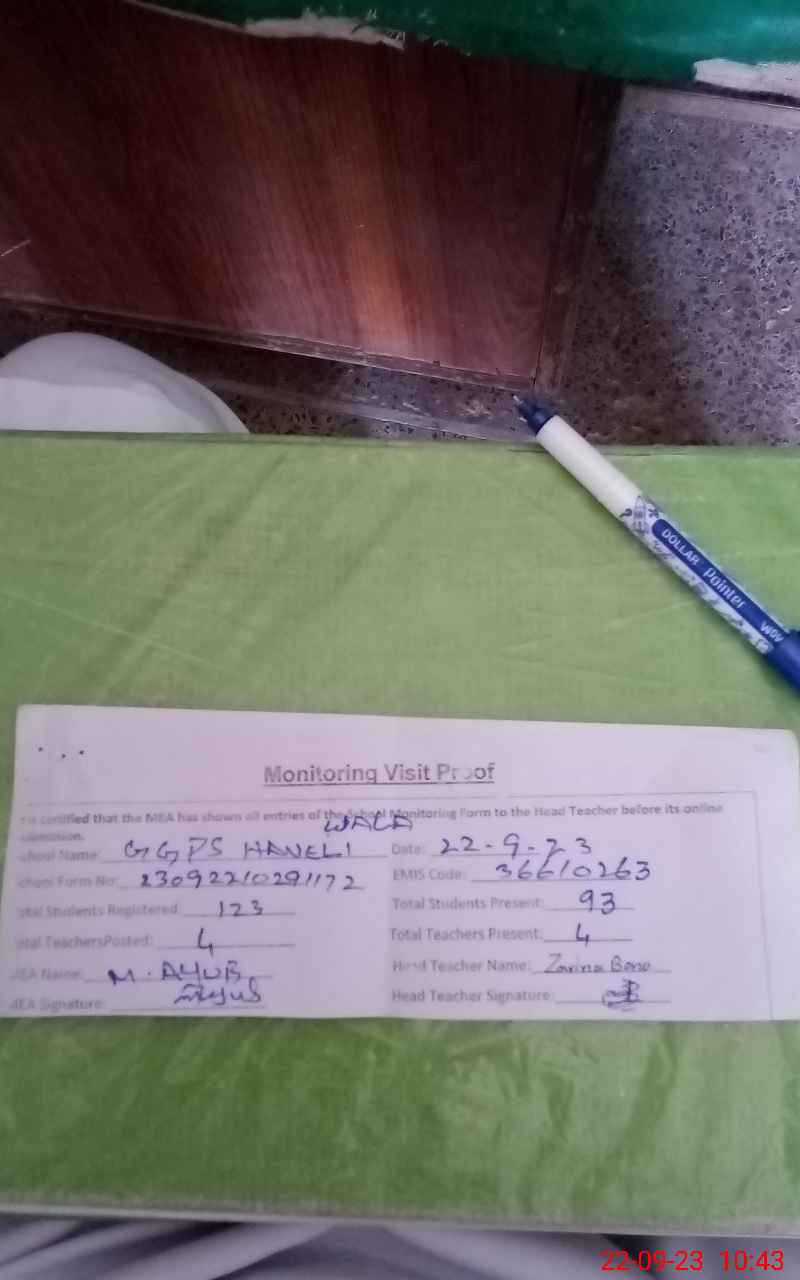 DOLLAR Pointer
Monitoring Visit Proof
certified that the MEA has shown all entries of the School Monitoring Form to the Head Teacher before its online
WALA
chool Name: GGPS HAVELI Date: 22-9-23
chool Form No: 23092210291172 EMIS Code: 36610263
otal Students Registered: 123 Total Students Present: 93
otal TeachersPosted: 4 Total Teachers Present: 4
MEA Name: M. AYUB Head Teacher Name: Zarina Bano
MEA Signature: Head Teacher Signature:
22-09-23 10:43